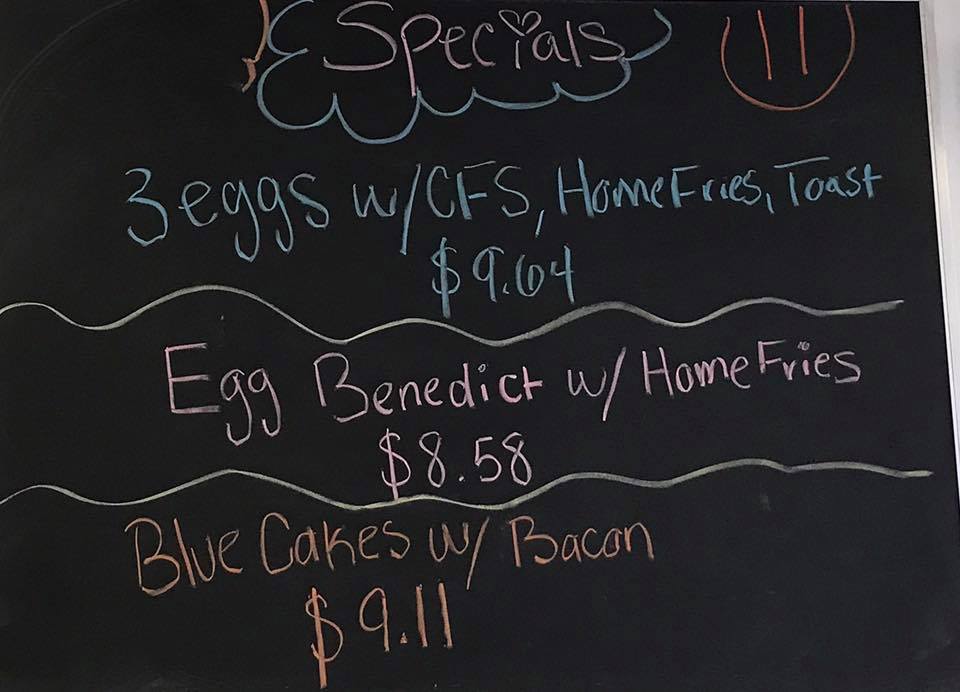 Specials
3 eggs w/ CFS, Home Fries, Toast
$9.64
Egg Benedict w/ Home Fries
$8.58
Blue Cakes w/ Bacon
$9.11